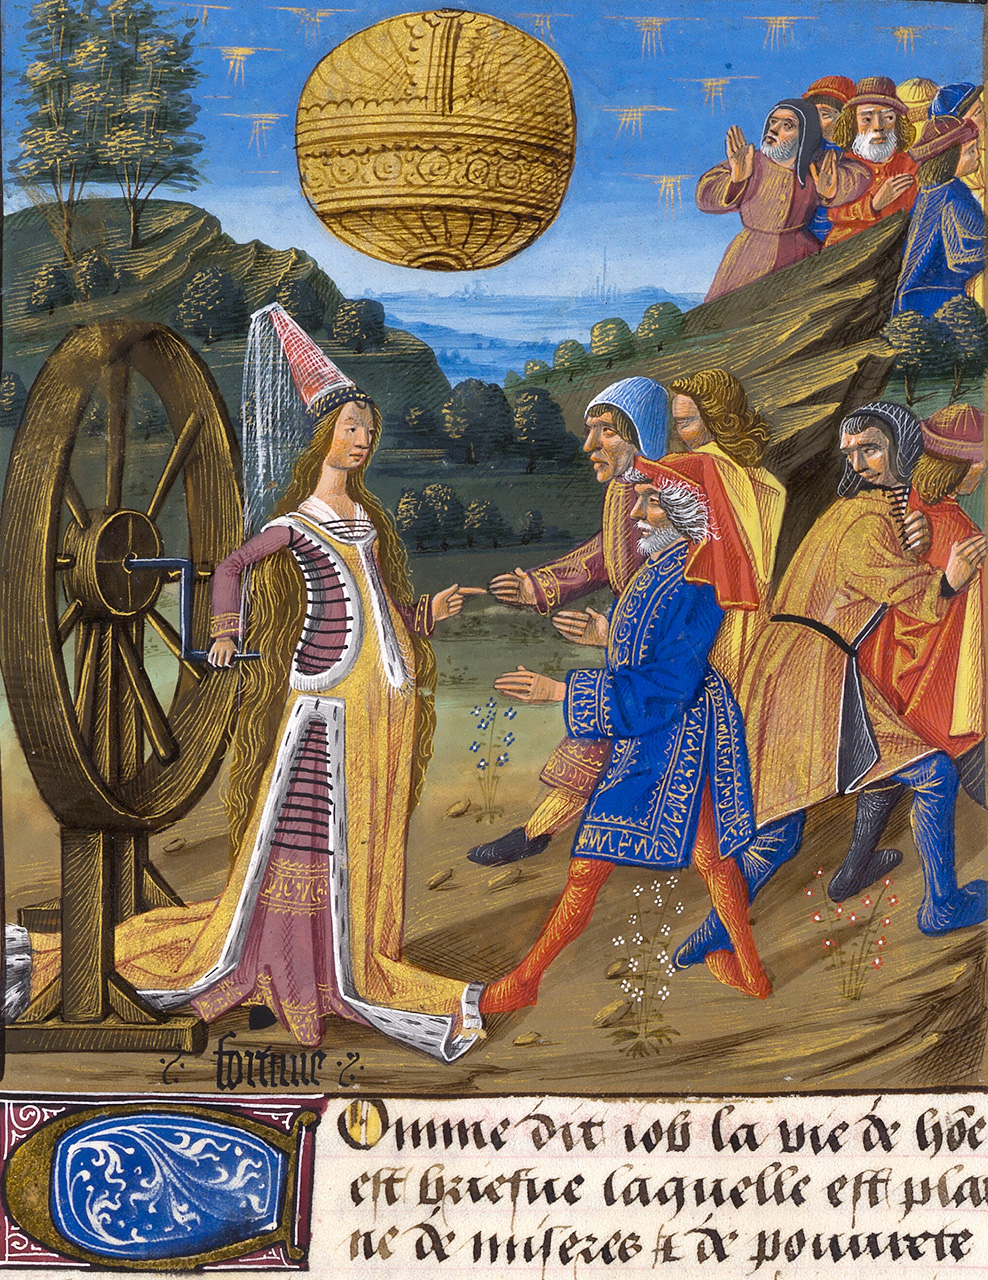 fortune
Omme dit iob la vie de hõe
est briefue laquelle est plai
ne de miseres & de pouurete